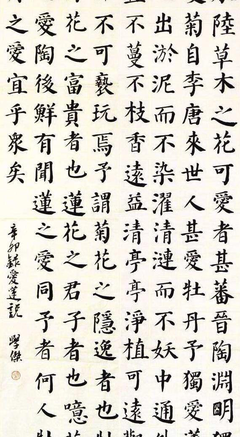 陸草木之花可愛者甚蕃晉陶淵明獨
菊自李唐來世人甚愛牡丹予獨愛
出淤泥而不染濯清漣而不妖中通外
不蔓不枝香遠益清亭亭淨植可遠
不可褻玩焉予謂菊花之隱逸者也
花之富貴者也蓮花之君子者也噫
愛陶後鮮有聞蓮之愛同予者何人
之愛宜乎眾矣
辛卯錄愛蓮說 學傑